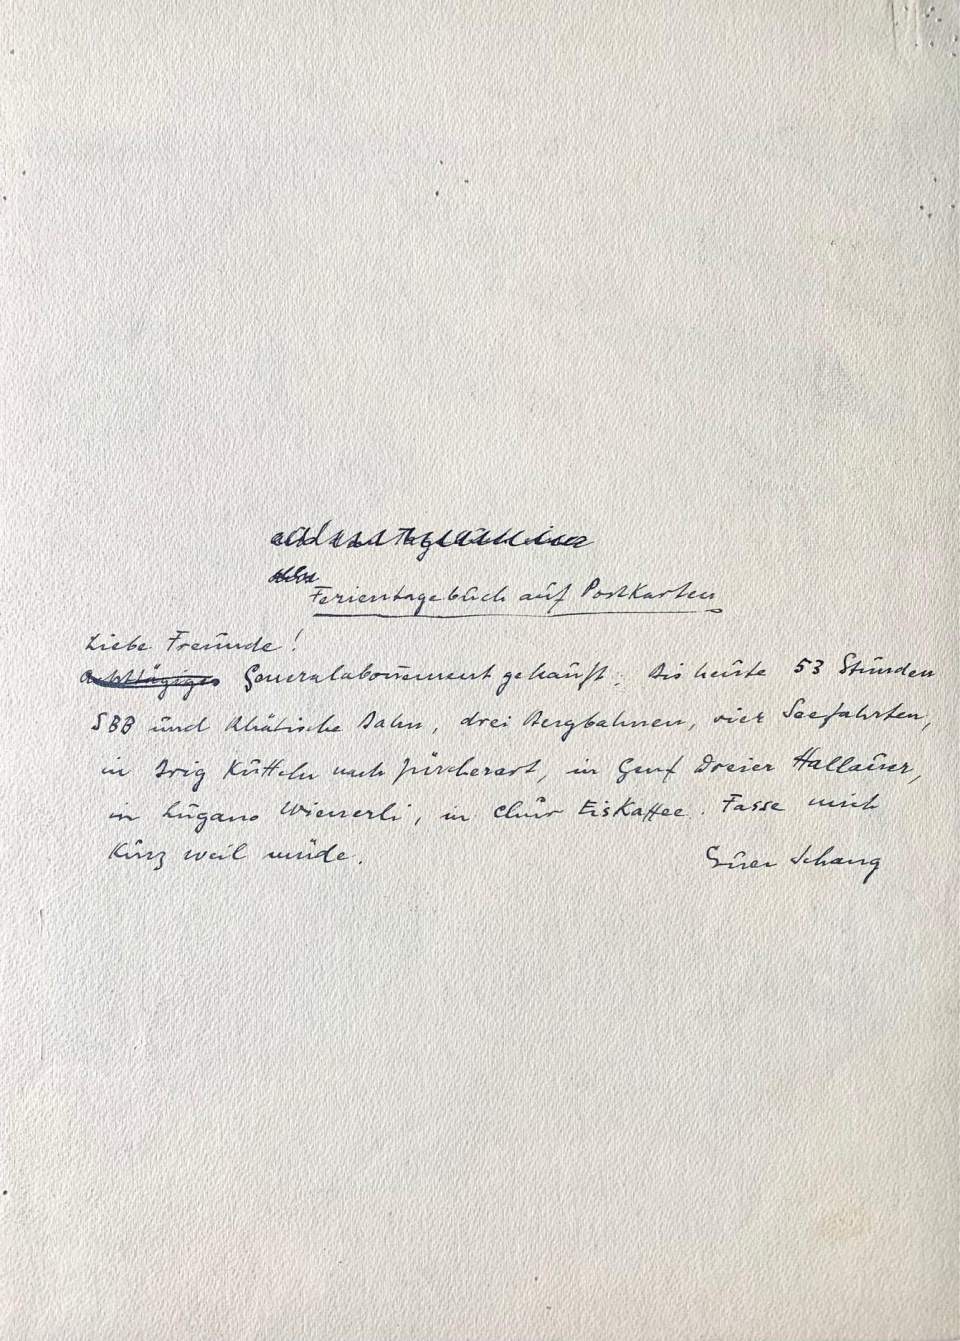 Ferientagebuch auf Postkarten
Liebe Freunde!
Achttägiges Generalabonnement gekauft. Bis heute 53 Stunden
SBB und Rhätische Bahn, drei Bergbahnen, vier Seefahrten,
in Brig Kutteln nach Zürcherart, in Genf Dreier Hallauer,
in Lugano Wienerli, in Chur Eiskaffee. Fasse mich
kurz weil müde.
Euer Schang